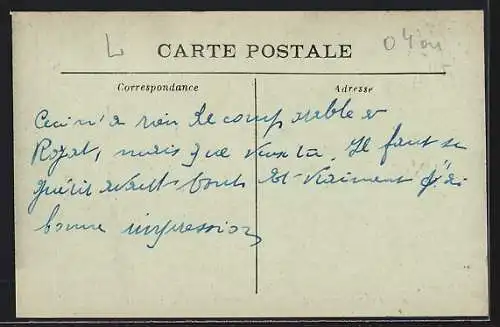 L
04
CARTE POSTALE
Correspondance
Adresse
Ceci n'a rien de comparable à
Royat, mais que veux tu. Il faut se
guérir avant tout et vraiment j'ai
bonne impression